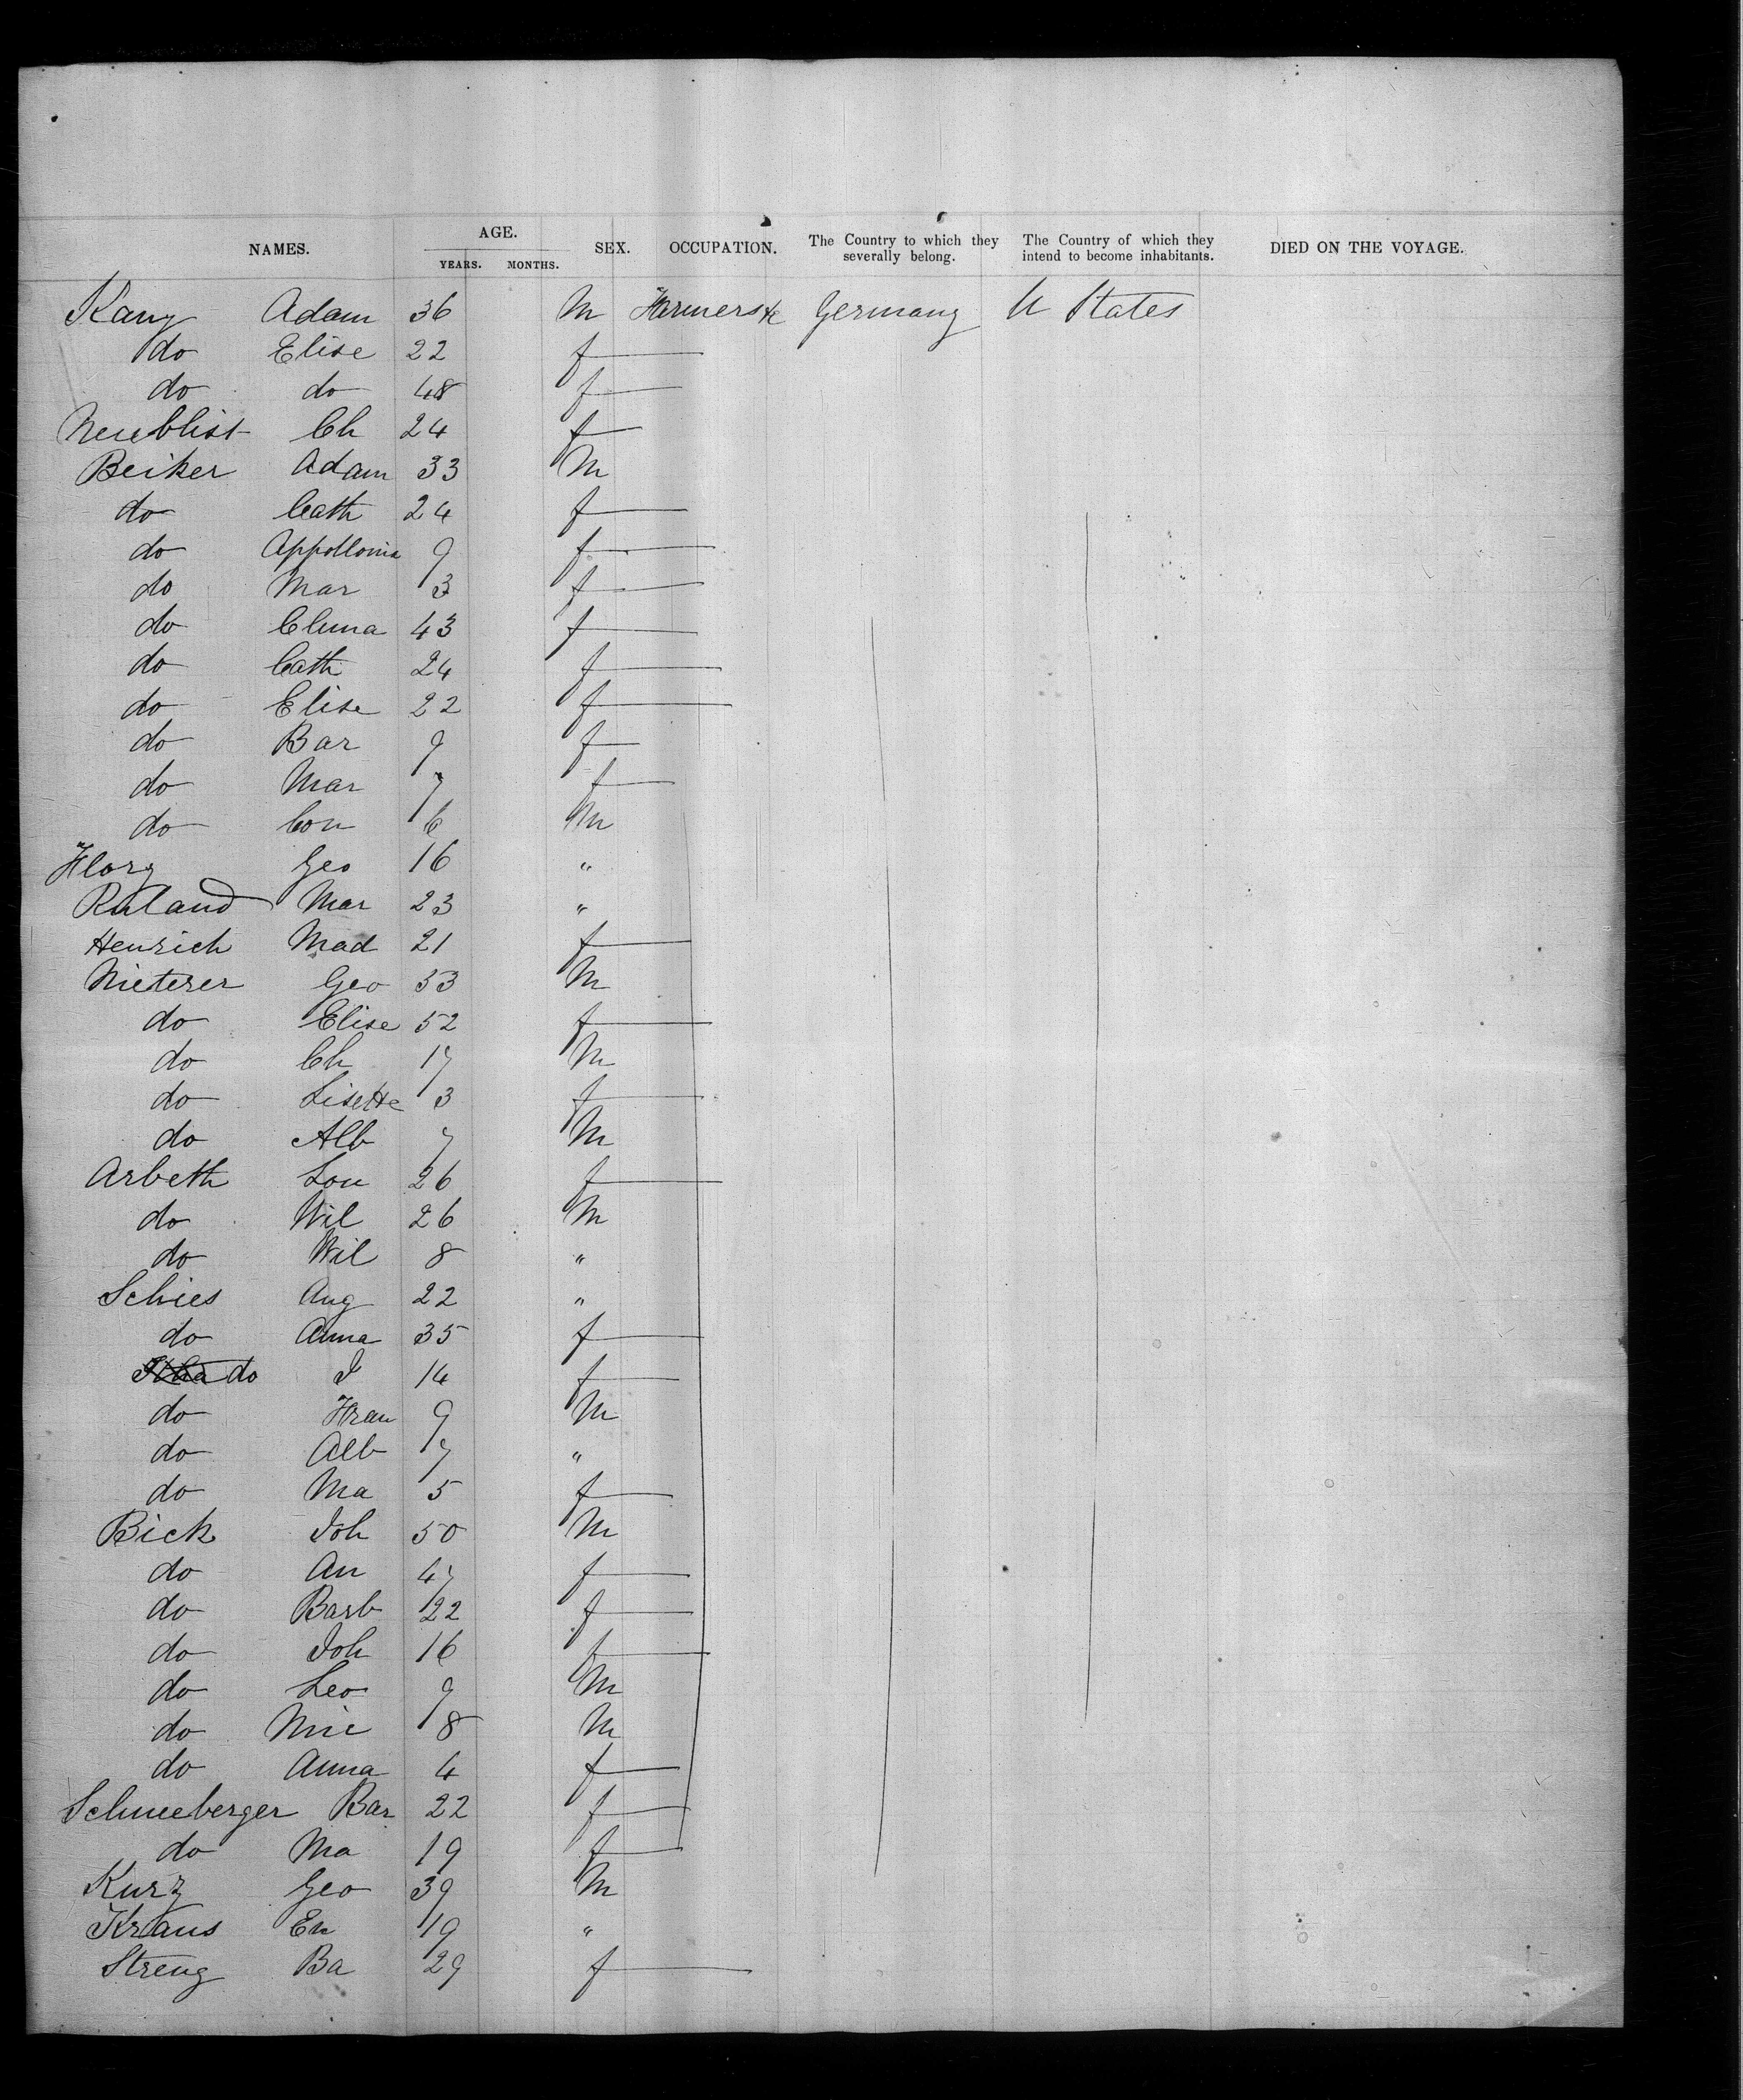 NAMES. AGE. YEARS. MONTHS. SEX. OCCUPATION. The Country to which they severally belong. The Country of which they intend to become inhabitants. DIED ON THE VOYAGE.
Kany Adam 36 M Farmers &c Germany U States
do Elise 22 f
do do 48 f
Neueblist Ch 24 f
Beiker Adam 33 M
do Cath 24 f
do Appollonia 9 f
do Mar 3 f
do Clema 43 f
do Cath 24 f
do Elise 22 f
do Bar 9 f
do Mar 7 f
do Con 6 M
Florg Geo 16 "
Ruland Mar 23 "
Henrich Mad 21 f
Nieterer Geo 53 M
do Elise 52 f
do Ch 17 M
do Lisette 3 f
do Alb 7 M
Arbeth Lou 26 f
do Wil 26 M
do Wil 8 "
Schies Aug 22 "
do Anna 35 f
do I 14 f
do Fran 9 M
do Alb 7 "
do Ma 5 f
Bick Joh 50 M
do An 47 f
do Barb 22 f
do Joh 16 f
do Leo 9 M
do Mic 8 M
do Anna 4 f
Schneeberger Bar 22 f
do Ma 19 f
Kurz Geo 39 M
Kraus En 19 "
Streng Ba 29 f